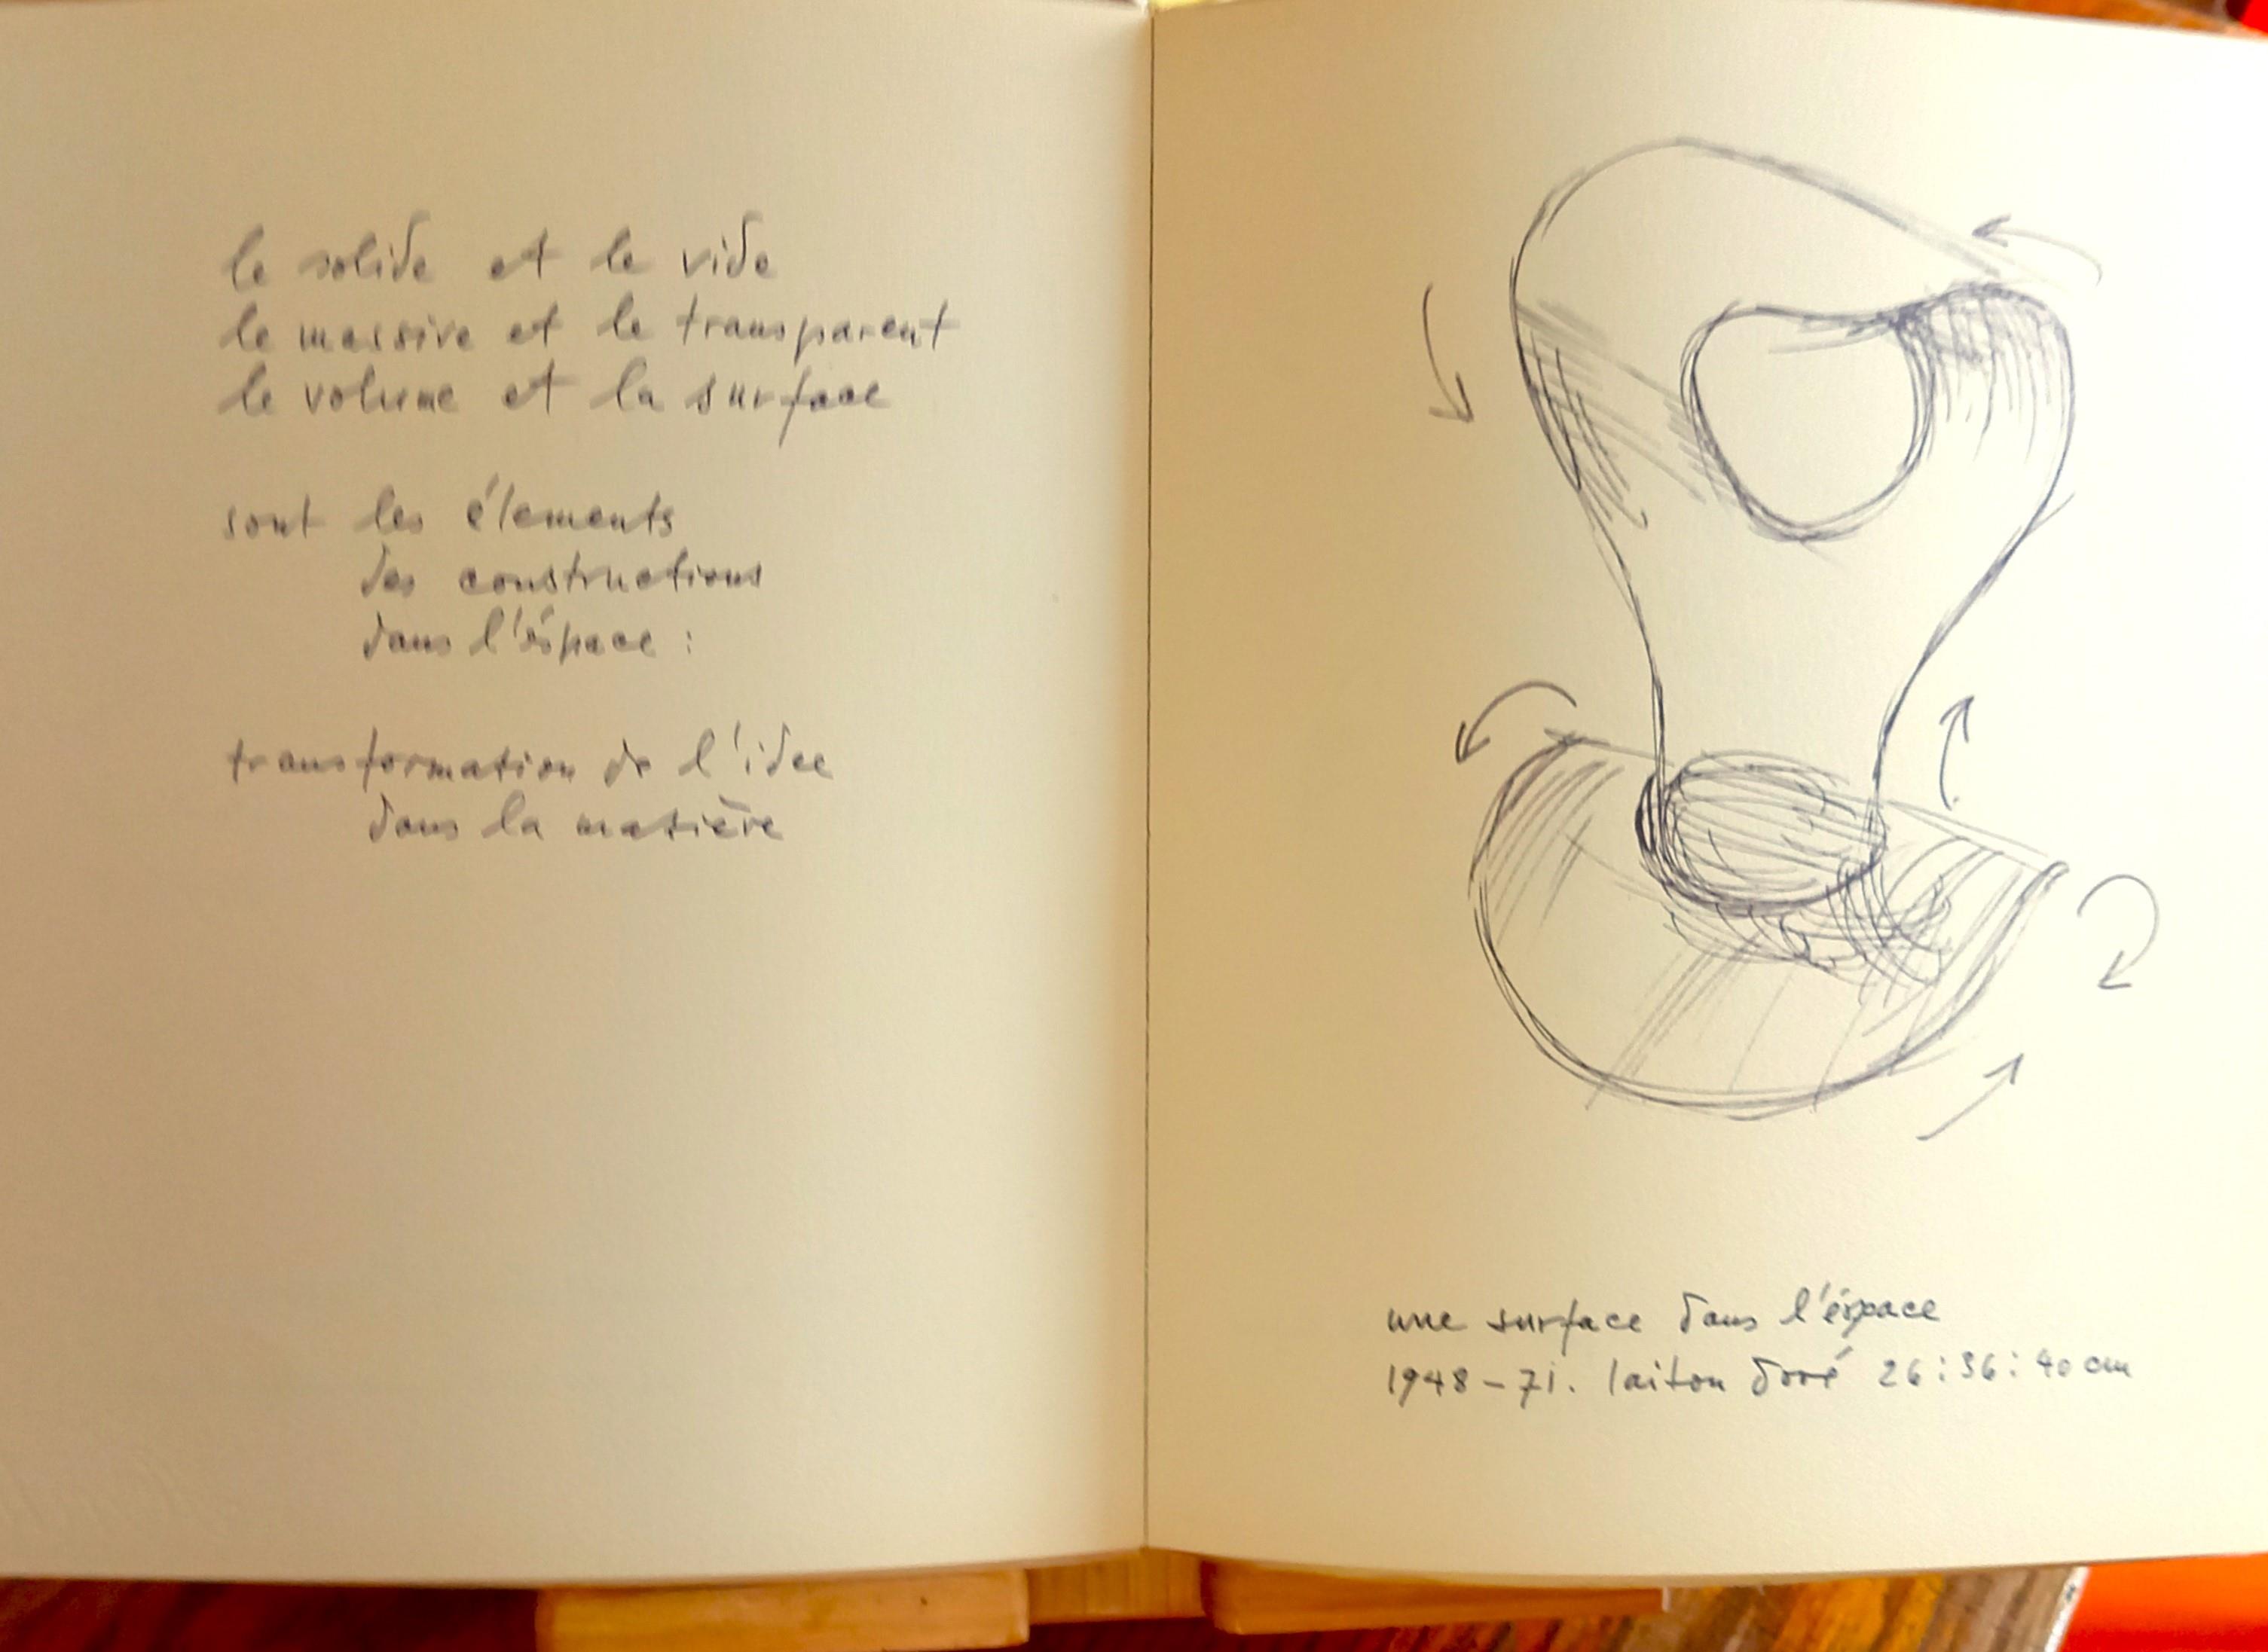 le solide et le vide
le massive et le transparent
le volume et la surface
sont les élements
des constructions
dans l'éspace :
transformation de l'idee
dans la matière
une surface dans l'éspace
1948-71. laiton doré 26:36:40 cm